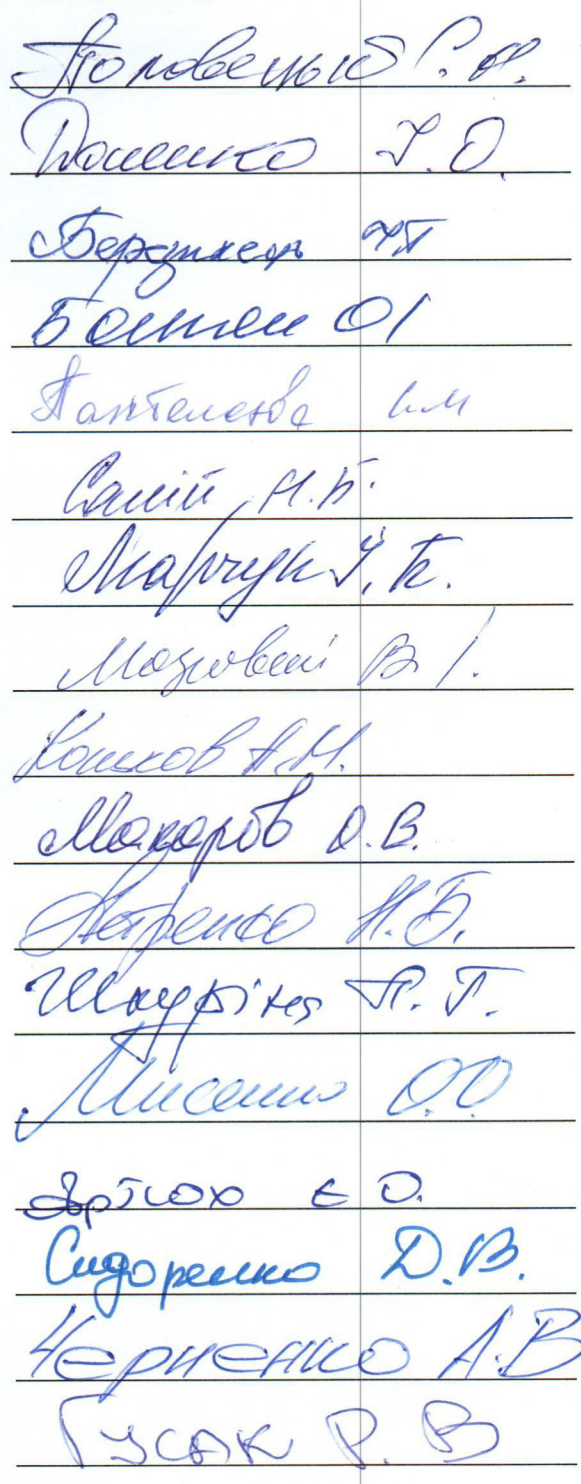 Половецький С. А.
Доценко І. О.
Бердинець
Бойчен О І
Пантелєєва І.М
Салій Н.Б.
Марчук І. В.
Мазковий В. І.
Кошков А.М.
Макаров О.В.
Петренко Н.Б.
Шкуріна Л. Г.
Лисенко О.О
Єртюх Є О.
Сидоренко Д.В.
Черненко А.В
Гусак Р. В